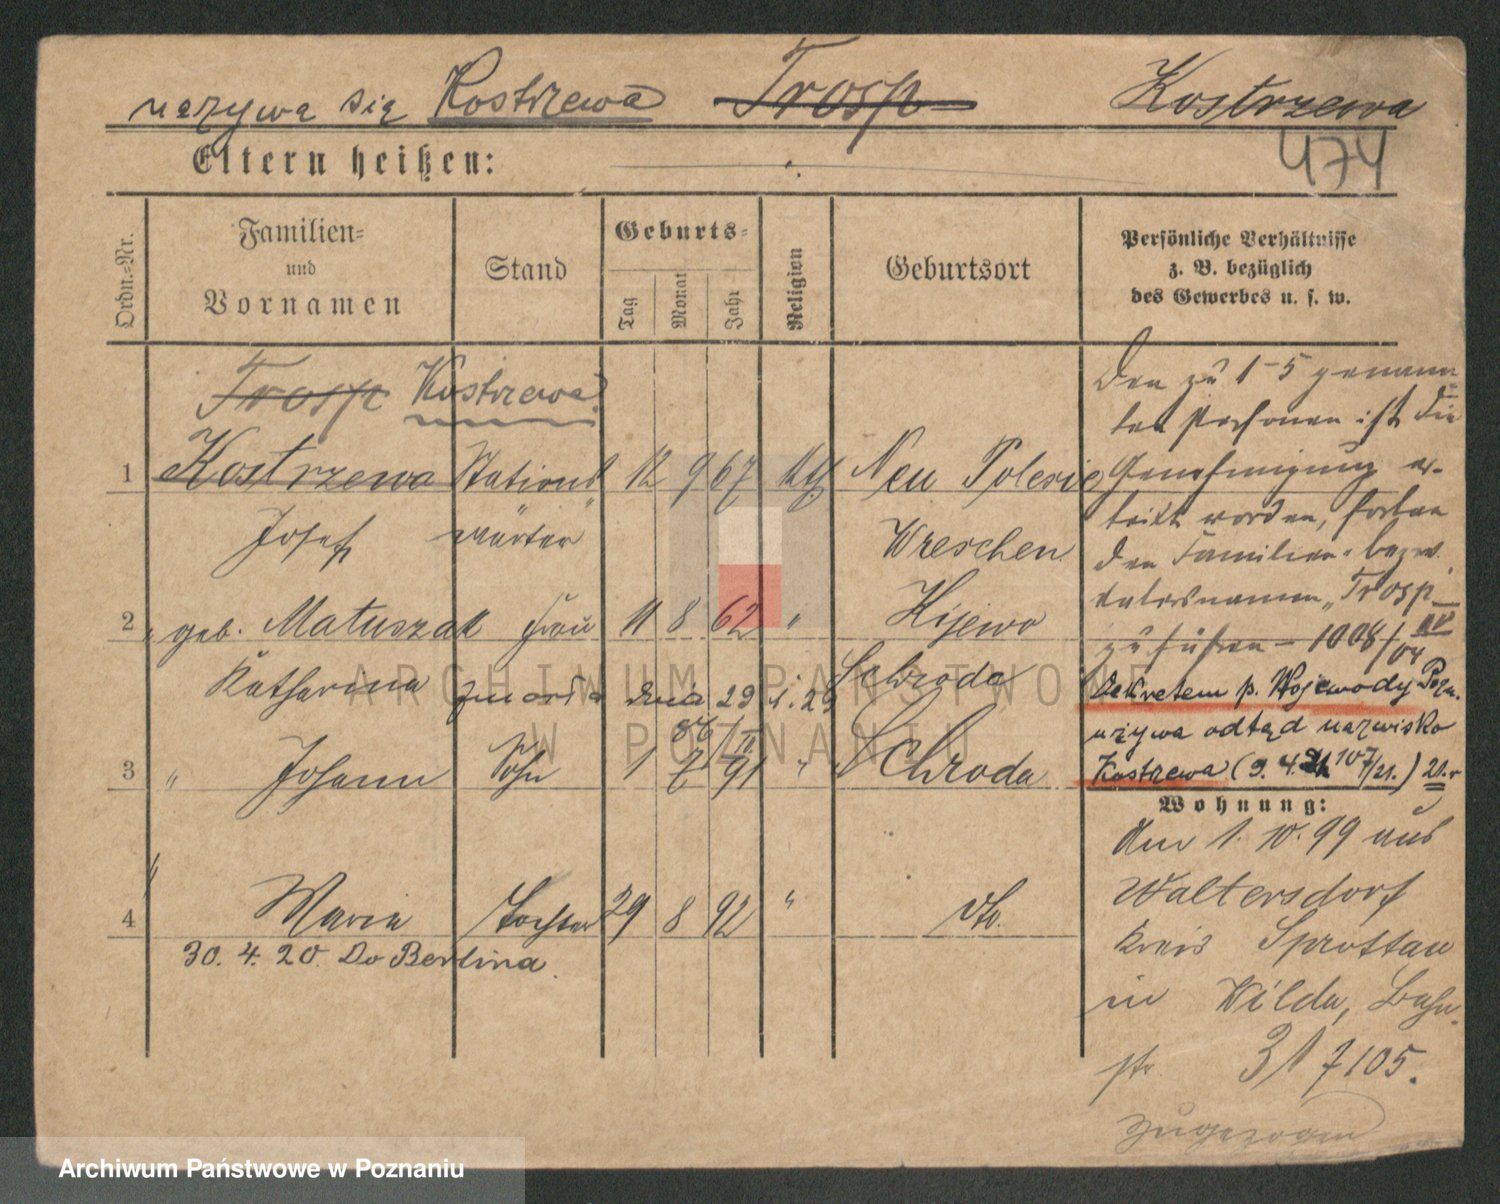 nazywa się Kostrzewa Trosp Kostrzewa
474
Eltern heißen:
Ordn.-Nr.
Familien- und Vornamen
Stand
Geburts-
Tag Monat Jahr
Religion
Geburtsort
Persönliche Verhältnisse
z. B. bezüglich
des Gewerbes u. s. w.
Trosp Kostrzewa
1 Kostrzewa Stations 12 9 67 kth Neu Polesie
Josef wärter Wreschen
2 " geb. Matuszak Frau 11 8 62 " Kijewo
Katharina zmarła dnia 29 Schroda
3 " Johann Sohn 1 7 91 " Schroda
4 " Maria Tochter 29 8 92 " do.
30. 4. 20. do Berlina.
Den zu 1-5 genann-
ten Personen ist die
Genehmigung er-
teilt worden, fortan
den Familien- bezw.
Vatersnamen "Trosp"
zu führen - 1008/04
Dekretem p. Wojewody Pozn.
używa odtąd nazwisko
Kostrzewa (9. 4. 21 107/21.)
Wohnung:
Am 1. 10. 99 aus
Waltersdorf
Kreis Sprottau
in Wilda, Bahn-
str 31 7105.
zugezogen
ARCHIWUM PAŃSTWOWE
W POZNANIU
Archiwum Państwowe w Poznaniu